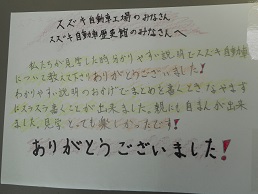 スズキ自動車工場のみなさん
スズキ自動車歴史館のみなさんへ
私たちが見学した時分かりやすい説明でスズキ自動車
について教えて下さりありがとうございました!
わかりやすい説明のおかげでまとめを書くときなやまず
にスラスラ書くことが出来ました。親にも自まんが出来
ました。見学とっても楽しかったです!
ありがとうございました!